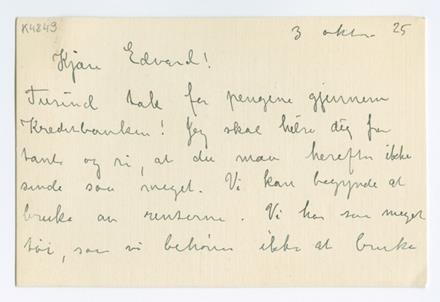 K4849
3 oktr. 25
Kjære Edvard!
Tusind tak for pengene gjennem
Kreditbanken! Jeg skal hilse dig fra
tante og si, at du maa herefter ikke
sende saa meget. Vi kan begynde at
bruke av renterne. Vi har saa meget
tøi, saa vi behøver ikke at bruke